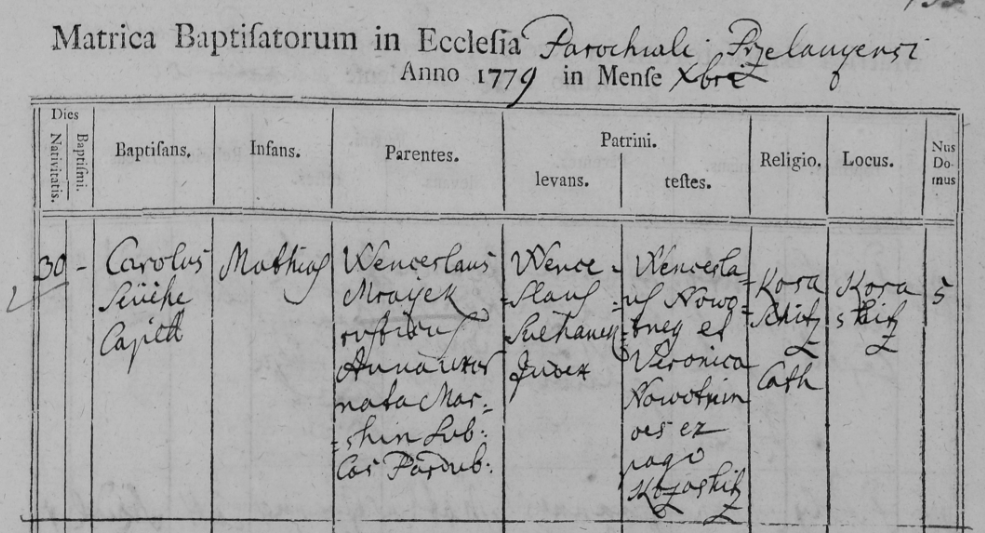 Matrica Baptisatorum in Ecclesia Parochiali Przelaucensi
Anno 1779 in Mense Xbris
Dies
Nativitatis.
Baptismi.
Baptisans.
Infans.
Parentes.
Patrini.
levans.
testes.
Religio.
Locus.
Nus
Do-
mus
30 -
Carolus
Capell
Mathias
Wenceslaus
Mrazek
rusticus
Anna uxor
nata Mar-
Sub:
Cos Pardub:
Wence-
slaus
Judex
Wencesla
us Nowo-
tney et
Veronica
Nowotnin
oes ex
pago
Kozaschitz
Koza
schitz
Cath
Koza
shitz
5